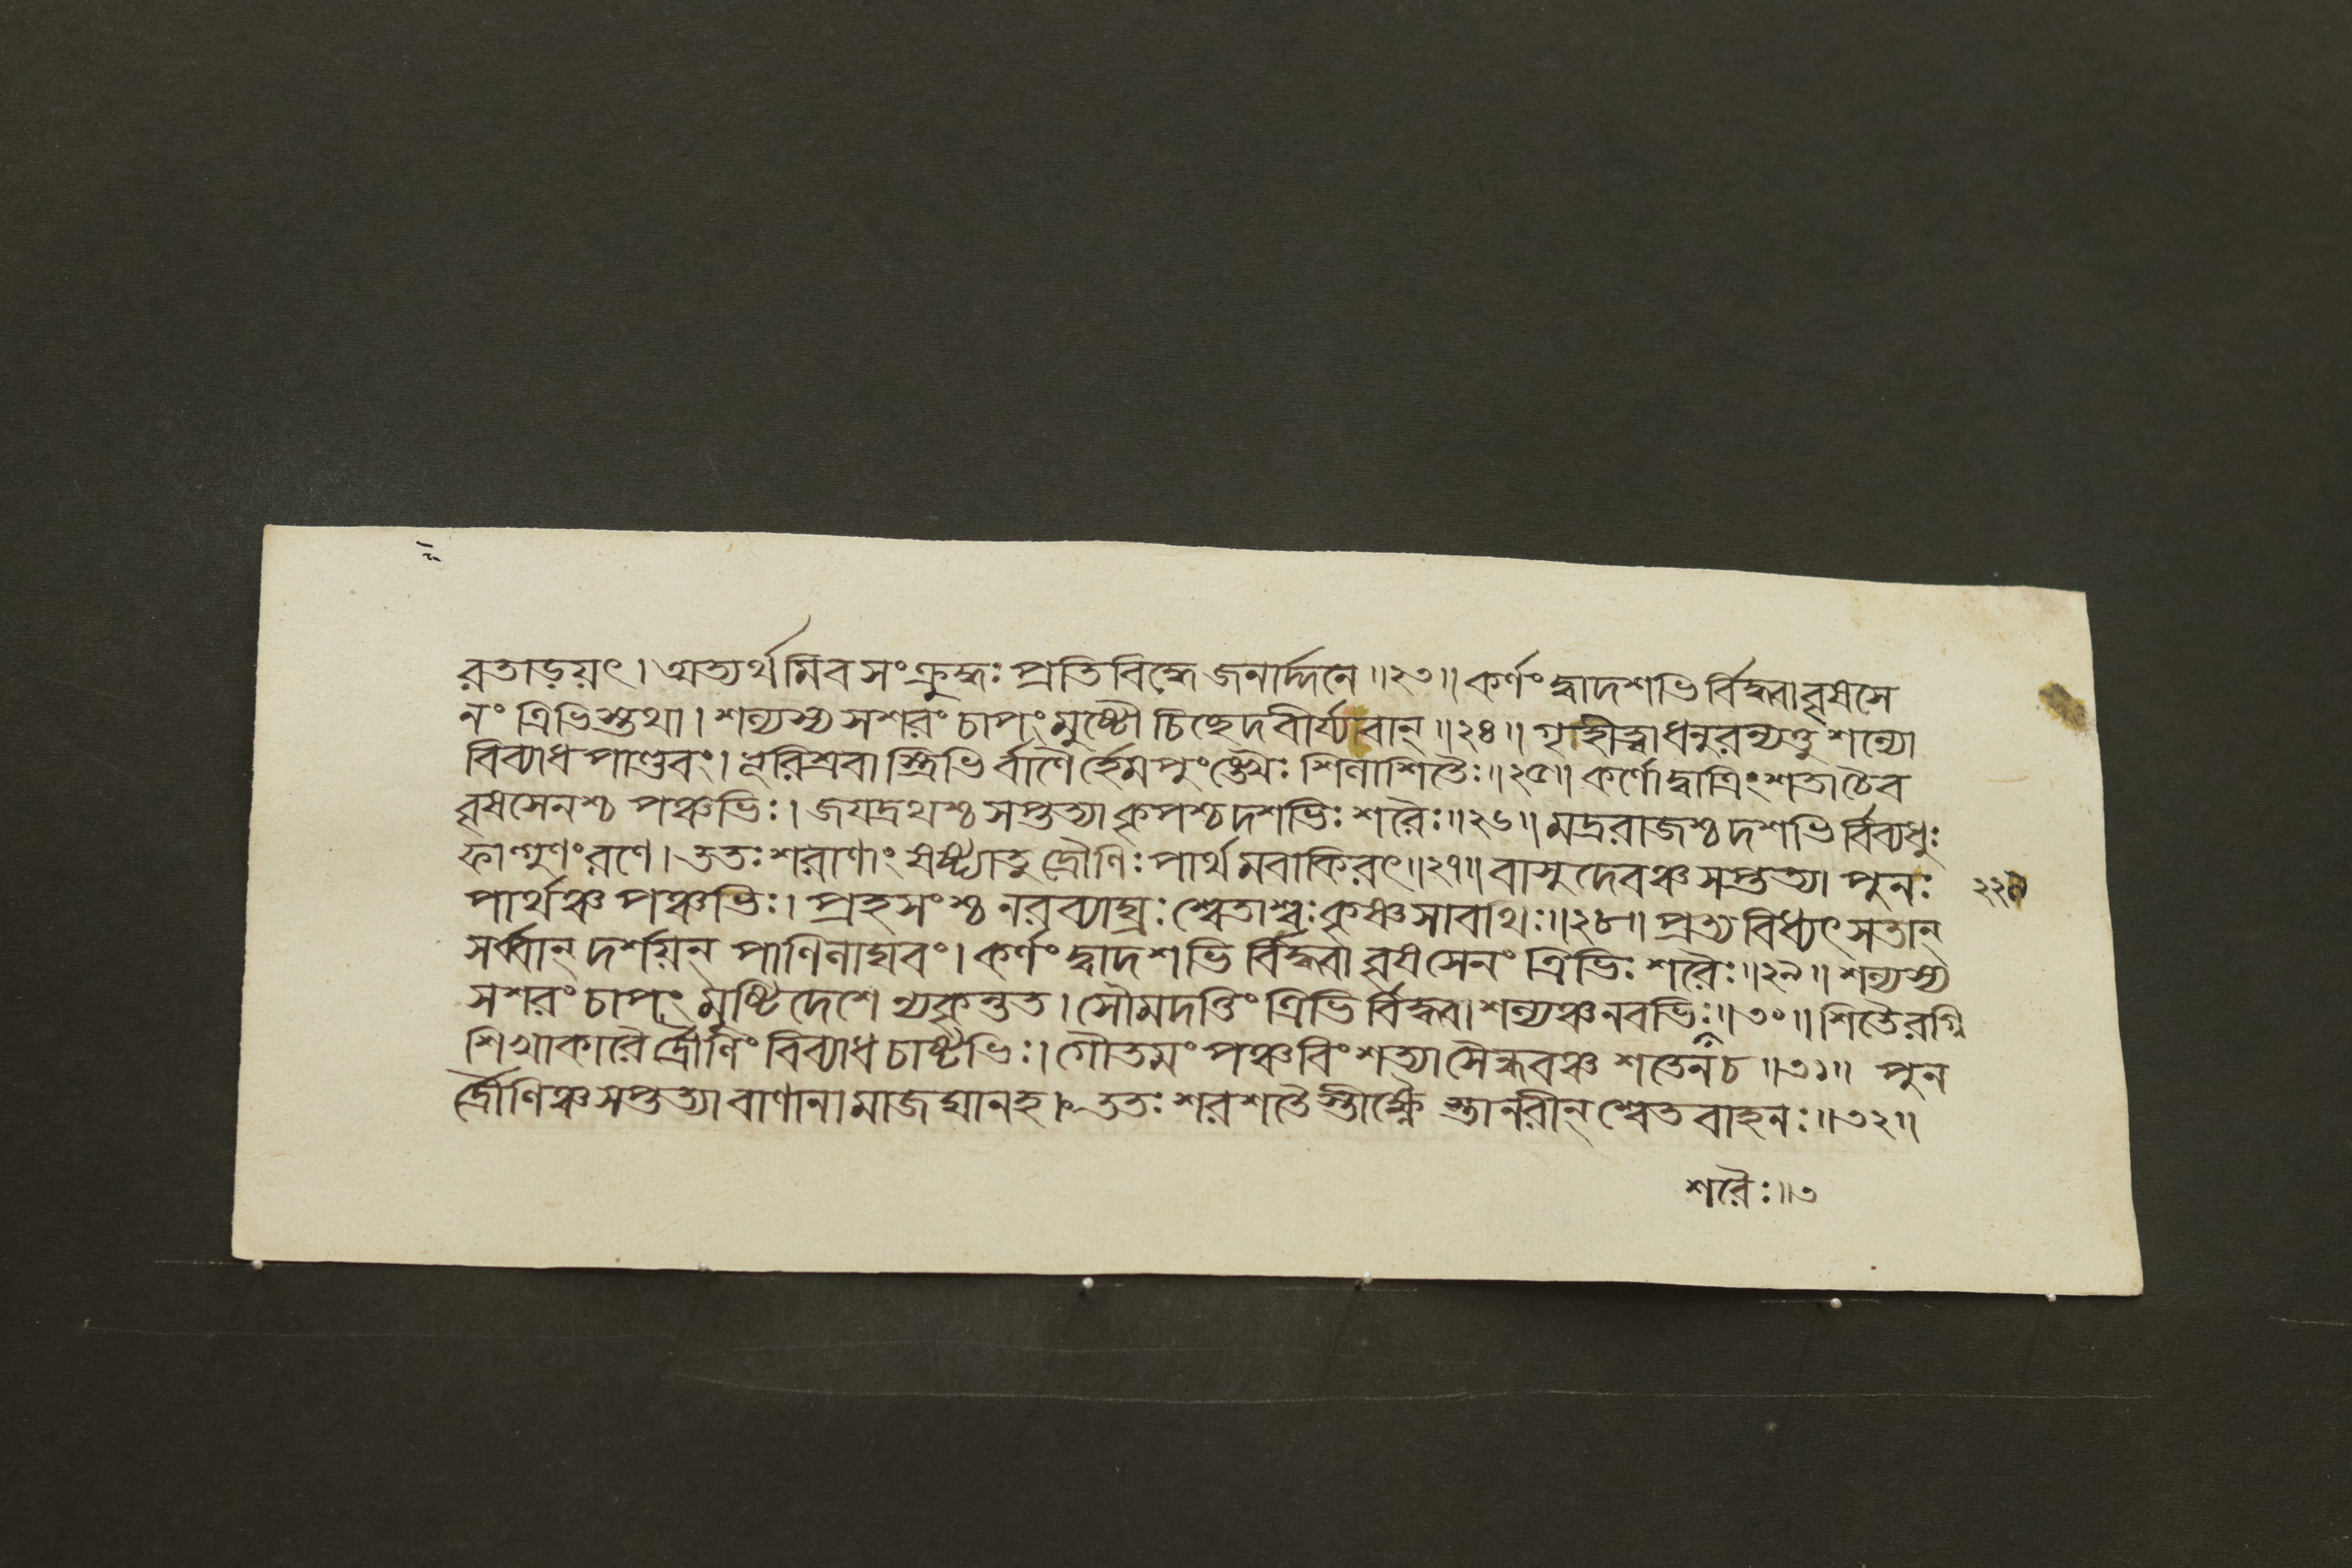 রতাড়য়ৎ। অত্যর্থমিবসংক্রুদ্ধঃ প্রতিবিদ্ধে জনার্দ্দনে॥২৩॥ কর্ণং দ্বাদশভির্বিদ্ধ্বা বৃষসে
নং ত্রিভিস্তথা। শল্যস্য সশরং চাপং মুষ্টৌ চিচ্ছেদ বীর্য্যবান্॥২৪॥ গৃহীত্বা ধনুরন্যত্তু শল্যো
বিব্যাধ পাণ্ডবং। ভূরিশ্রবাস্ত্রিভির্বাণৈর্হেমপুংঙ্খৈঃ শিলাশিতৈঃ॥২৫॥ কর্ণো দ্বাত্রিংশতা চৈব
বৃষসেনশ্চ পঞ্চভিঃ। জয়দ্রথশ্চ সপ্তত্যা কৃপশ্চ দশভিঃ শরৈঃ॥২৬॥ মদ্ররাজশ্চ দশভির্বিব্যধুঃ
ফাল্গুণং রণে। ততঃ শরাণাং ষষ্ট্যা তু দ্রৌণিঃ পার্থমবাকিরৎ॥২৭॥ বাসুদেবঞ্চ সপ্তত্যা পুনঃ
পার্থঞ্চ পঞ্চভিঃ। প্রহসংশ্চ নরব্যাঘ্রঃ শ্বেতাশ্বঃ কৃষ্ণসারথিঃ॥২৮॥ প্রত্যবিধ্যৎ স তান্
সর্ব্বান্ দর্শয়ন্ পাণিলাঘবং। কর্ণং দ্বাদশভির্বিদ্ধ্বা বৃষসেনং ত্রিভিঃ শরৈঃ॥২৯॥ শল্যস্য
সশরং চাপং মুষ্টিদেশে ন্যকৃন্তত। সৌমদত্তিং ত্রিভির্বিদ্ধ্বা শল্যঞ্চ নবভিঃ॥৩০॥ শিতৈরগ্নি
শিখাকারৈর্দ্রৌণিং বিব্যাধ চাষ্টভিঃ। গৌতমং পঞ্চবিংশত্যা সৈন্ধবঞ্চ শতেন চ॥৩১॥ পুন
র্দ্রৌণিঞ্চ সপ্তত্যা বাণানামাজঘান হ। ততঃ শরশতৈস্তীক্ষ্ণৈস্তানরীন্ শ্বেতবাহনঃ॥৩২॥
শরৈঃ॥৩